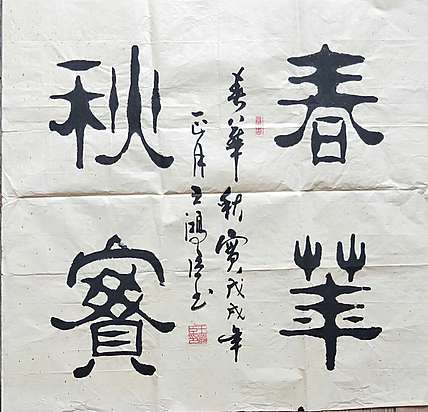 春華
秋實
春華秋實戊戌年
正月王鴻书